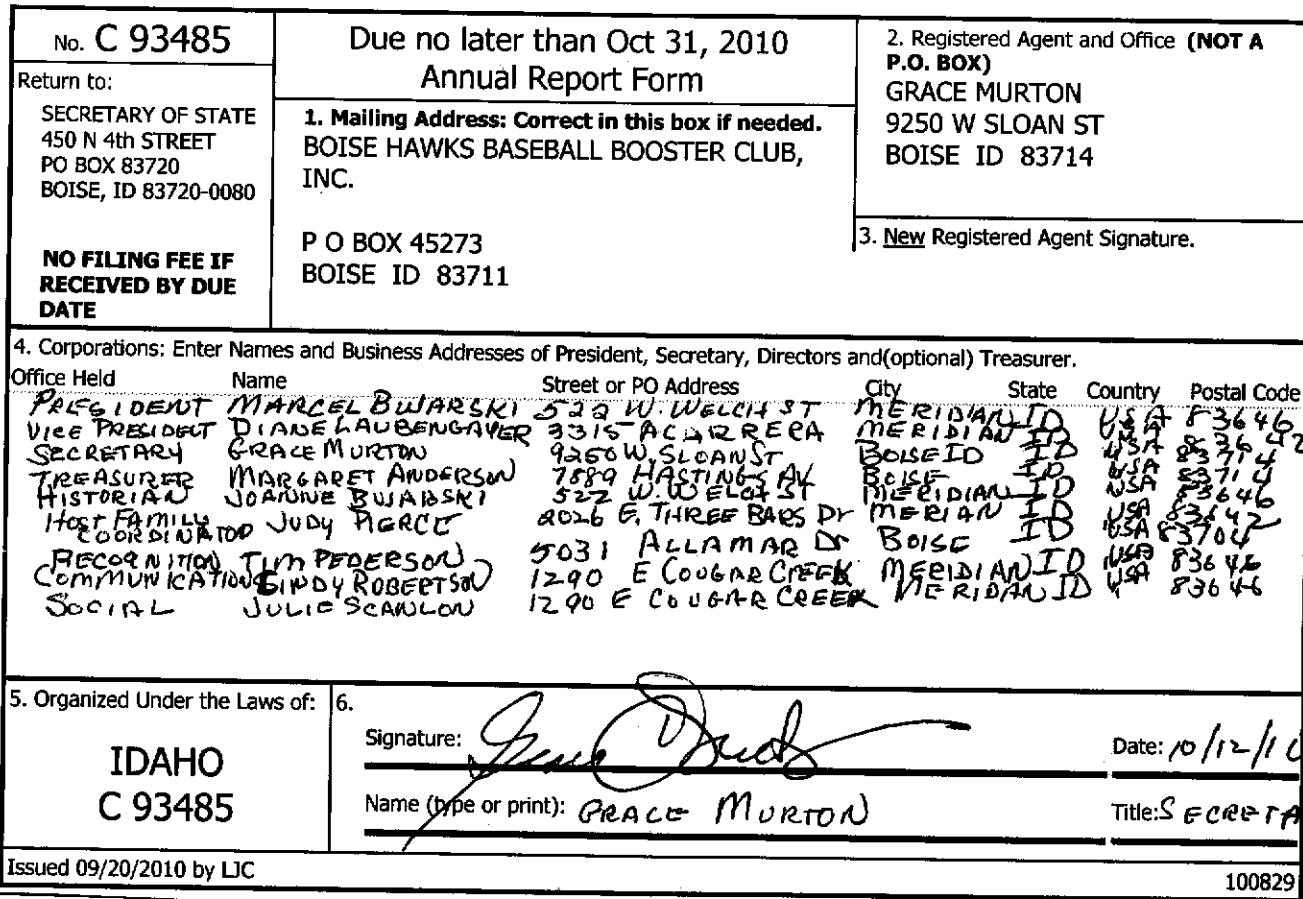 No. C 93485
Return to:
SECRETARY OF STATE
450 N 4th STREET
PO BOX 83720
BOISE, ID 83720-0080
NO FILING FEE IF
RECEIVED BY DUE
DATE
Due no later than Oct 31, 2010
Annual Report Form
1. Mailing Address: Correct in this box if needed.
BOISE HAWKS BASEBALL BOOSTER CLUB,
INC.
P O BOX 45273
BOISE ID 83711
2. Registered Agent and Office (NOT A
P.O. BOX)
GRACE MURTON
9250 W SLOAN ST
BOISE ID 83714
3. New Registered Agent Signature.
4. Corporations: Enter Names and Business Addresses of President, Secretary, Directors and(optional) Treasurer.
Office Held Name Street or PO Address City State Country Postal Code
PRESIDENT MARCEL BUJARSKI 522 W. WELCH ST MERIDIAN ID USA 83646
VICE PRESIDENT DIANE LAUBENGAYER MERIDIAN ID USA 83642
SECRETARY GRACE MURTON 9250 W. SLOAN ST BOISE ID ID USA 83714
TREASURER MARGARET ANDERSON 7889 HASTINGS AV BOISE ID USA 83714
HISTORIAN JOANNE BUJARSKI 522 W. WELCH ST MERIDIAN ID USA 83646
HOST FAMILY COORDINATOR JUDY PIERCE 2026 E. THREE BARS Dr MERIAN ID USA 83642
RECOGNITION TIM PEDERSON 5031 ALLAMAR Dr BOISE ID USA 83704
COMMUNICATIONS CINDY ROBERTSON 1290 E COUGAR CREEK MERIDIAN ID USA 83646
SOCIAL JULIE SCANLON 1290 E COUGAR CREEK MERIDAN ID 83646
5. Organized Under the Laws of:
IDAHO
C 93485
6.
Signature:
Date: 10/12/10
Name (type or print): GRACE MURTON
Title: SECRETA
Issued 09/20/2010 by LJC
100829